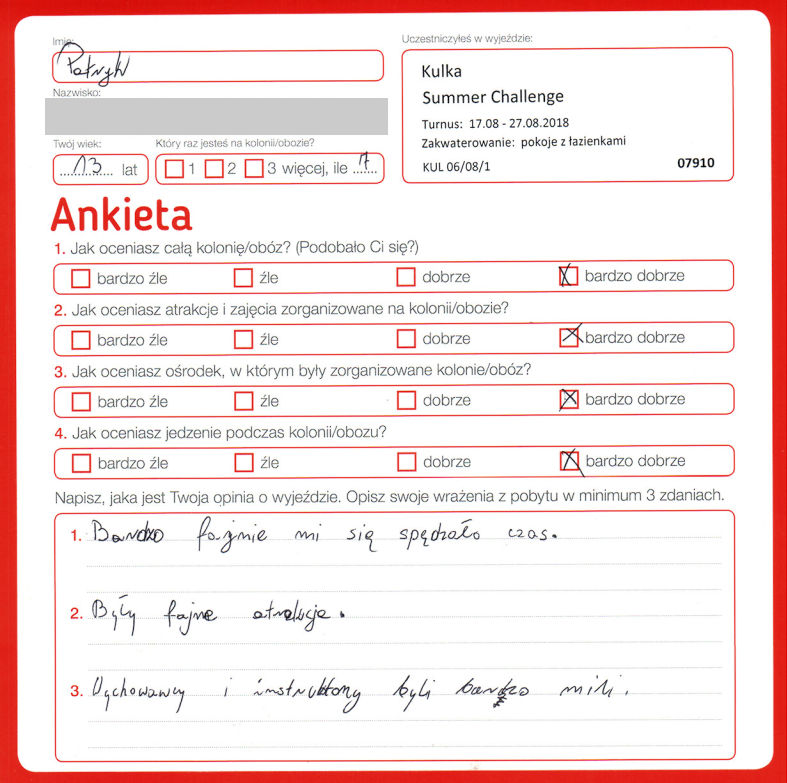 Imię:
Patryk
Nazwisko:
Twój wiek:
13 lat
Który raz jesteś na kolonii/obozie?
1 2 3 więcej, ile 7
Uczestniczyłeś w wyjeździe:
Kulka
Summer Challenge
Turnus: 17.08 - 27.08.2018
Zakwaterowanie: pokoje z łazienkami
KUL 06/08/1 07910
Ankieta
1. Jak oceniasz całą kolonię/obóz? (Podobało Ci się?)
bardzo źle źle dobrze bardzo dobrze
2. Jak oceniasz atrakcje i zajęcia zorganizowane na kolonii/obozie?
bardzo źle źle dobrze bardzo dobrze
3. Jak oceniasz ośrodek, w którym były zorganizowane kolonie/obóz?
bardzo źle źle dobrze bardzo dobrze
4. Jak oceniasz jedzenie podczas kolonii/obozu?
bardzo źle źle dobrze bardzo dobrze
Napisz, jaka jest Twoja opinia o wyjeździe. Opisz swoje wrażenia z pobytu w minimum 3 zdaniach.
1. Bardzo fajnie mi się spędzało czas.
2. Były fajne atrakcje.
3. Wychowawcy i instruktorzy byli bardzo mili.